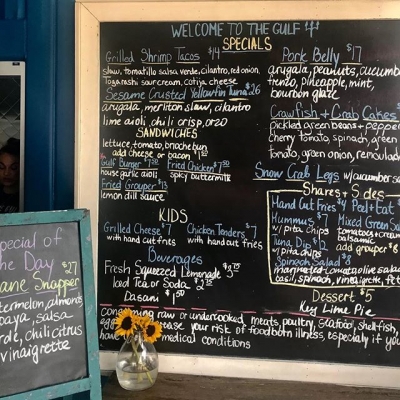 WELCOME TO THE GULF
SPECIALS
Grilled Shrimp Tacos $14
slaw, tomatillo salsa verde, cilantro, red onion,
Togarashi sour cream, cotija cheese
Sesame Crusted Yellowfin Tuna $26
arugala, merliton slaw, cilantro
lime aioli, chili crisp, orzo
SANDWICHES
lettuce, tomato, brioche bun
add cheese or bacon
Gulf Burger
house garlic aioli
Fried Chicken
spicy buttermilk
Fried Grouper $13
lemon dill sauce
KIDS
Grilled Cheese $7
with hand cut fries
Chicken Tenders $7
with hand cut fries
Beverages
Fresh Squeezed Lemonade
Iced Tea or Soda
Dasani
Pork Belly $17
arugala, peanuts, cucumb
pineapple, mint,
bourbon glaze
Crawfish + Crab Cakes
pickled green beans + pepper
cherry tomato, spinach, green
tomato, green onion, remoulad
Snow Crab Legs w/cucumber sa
Shares + Sides
Hand Cut Fries $4
Peel + Eat
Hummus $7
w/ pita chips
Mixed Green Sal
tomatoes + crea
balsamic
add grouper $8
Tuna Dip $12
w/ pita chips
Spinach Salad $8
marinated tomato, olive salad
basil, spinach, vinaigrette, fet
Dessert $5
Key Lime Pie
consuming raw or undercooked meats, poultry, seafood, shell-fish,
egg
ease your risk of foodborn illness, especially if you
hav
medical conditions
Special of
the Day
$27
ane Snapper
termelon, almonds,
paya, salsa
rde, chili citrus
vinaigrette